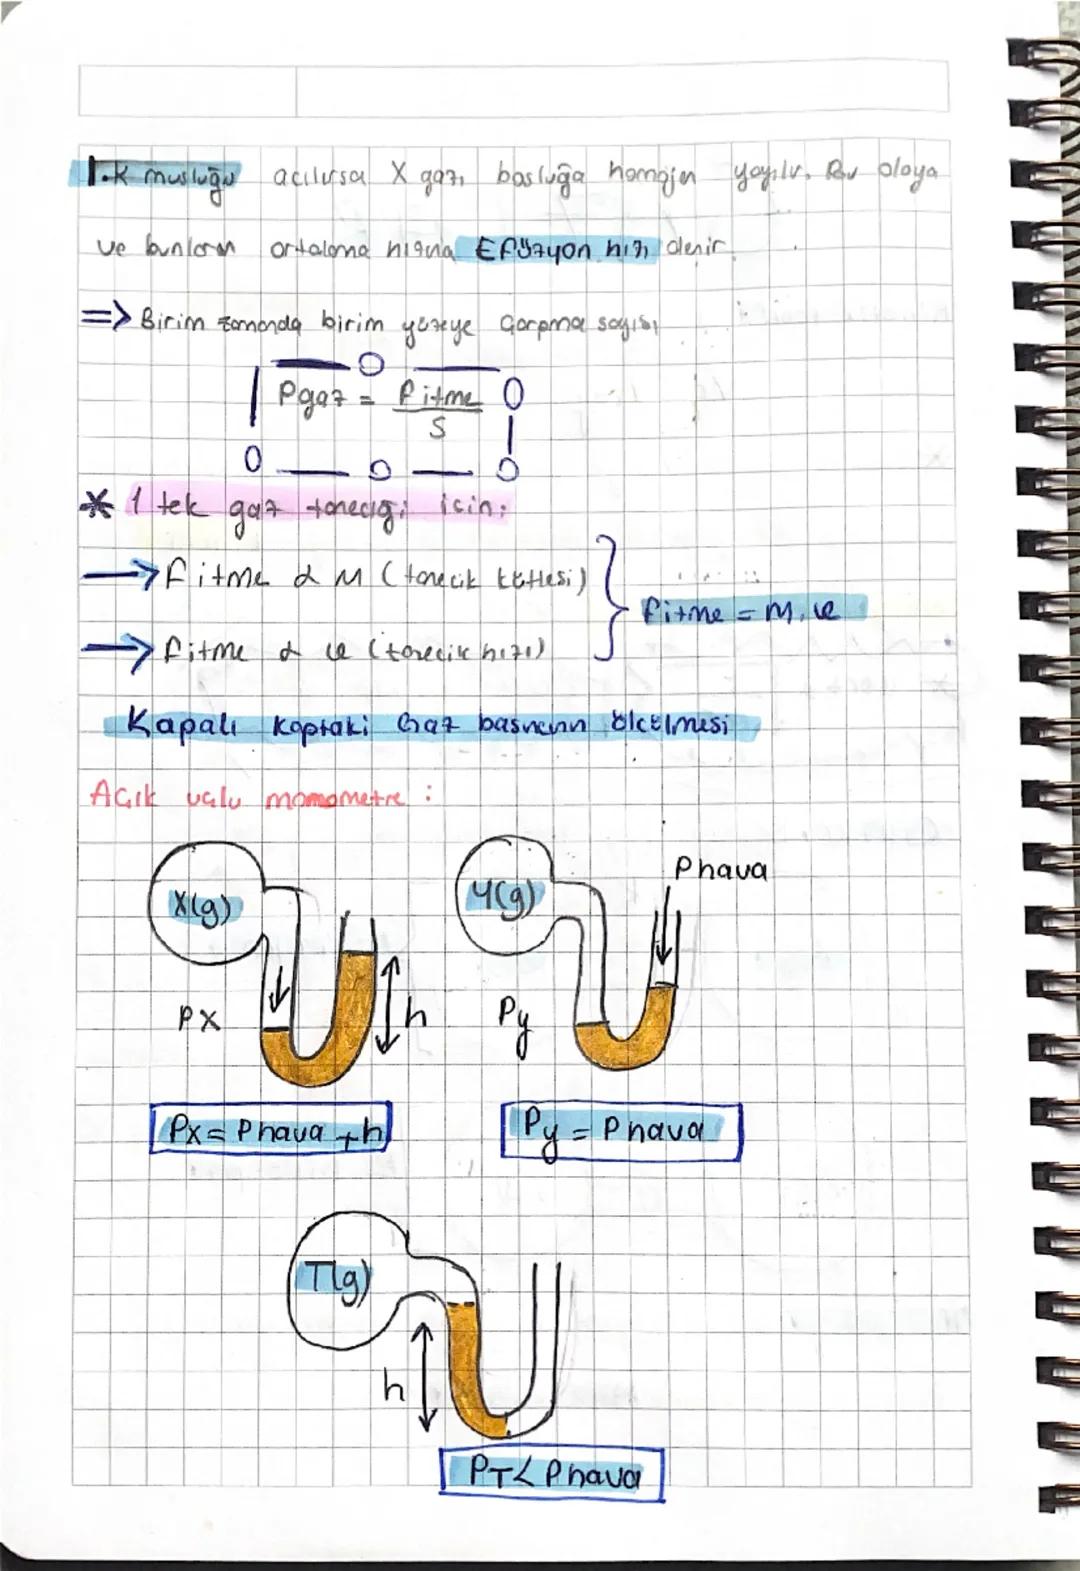 1.K musluğu açılırsa X gazı boşluğa homojen yayılır. Bu olaya
ve bunların ortalama hızına Efüzyon hızı denir.
=> Birim zamanda birim yüzeye Çarpma sayısı
Pgaz = fitme
S
* 1 tek gaz taneciği için:
→ fitme α M (tanecik kütlesi)
fitme = M.ϑ
→ fitme α ϑ (tanecik hızı)
Kapalı Kaptaki Gaz basıncının ölçülmesi
Açık uçlu momometre :
X(g)
Y(g)
Phava
PX
h
Py
Px = Phava + h
Py = Phava
T(g)
h
PT < Phava